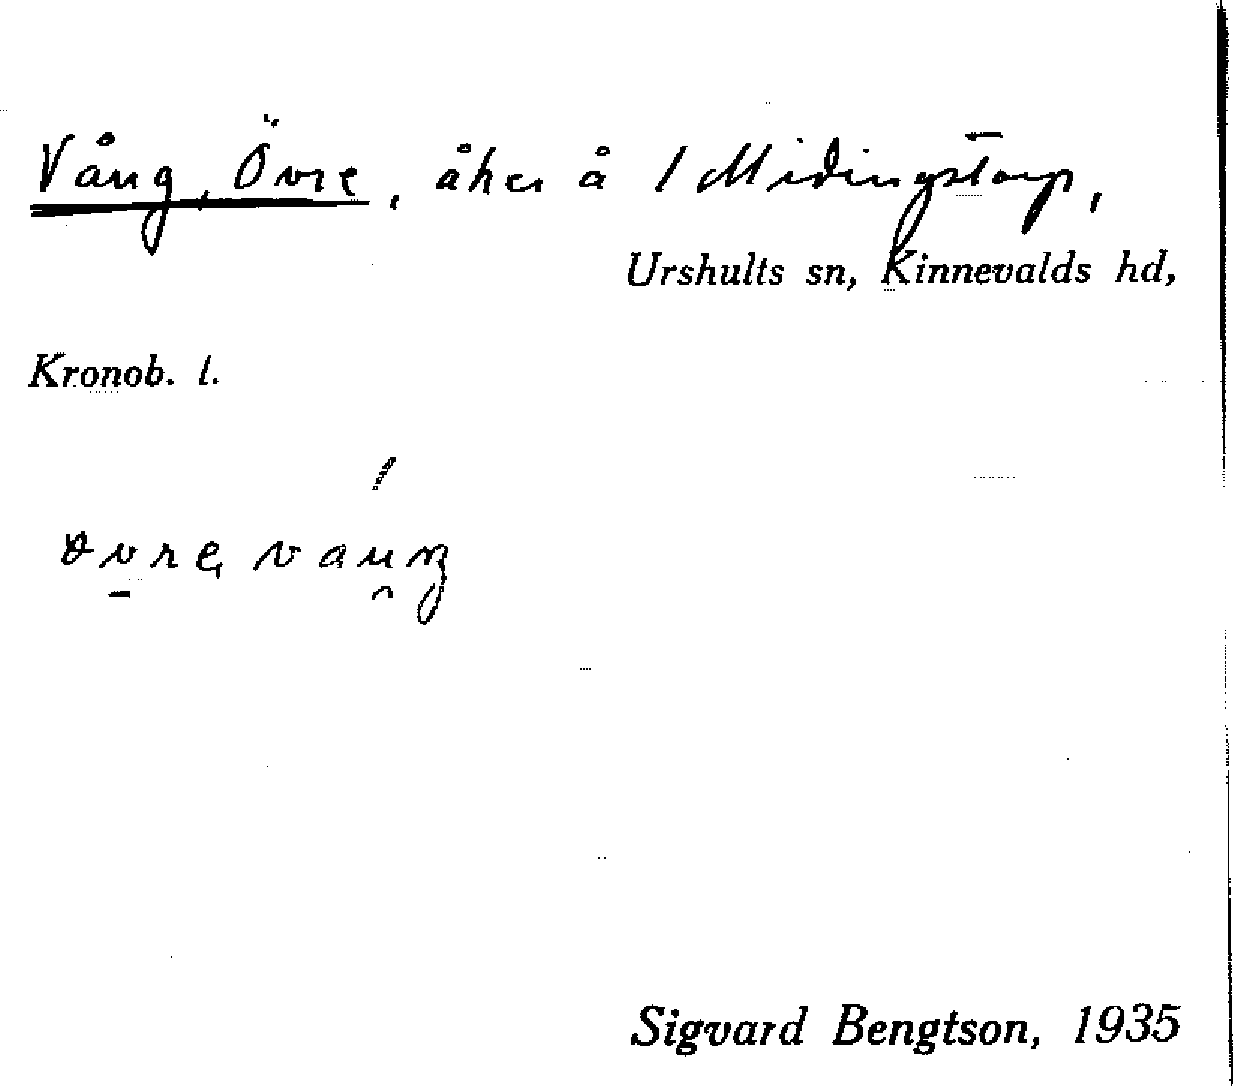 Vång, Övre, åker å 1 Midingstorp,
Urshults sn, Kinnevalds hd,
Kronob. l.
Sigvard Bengtson, 1935